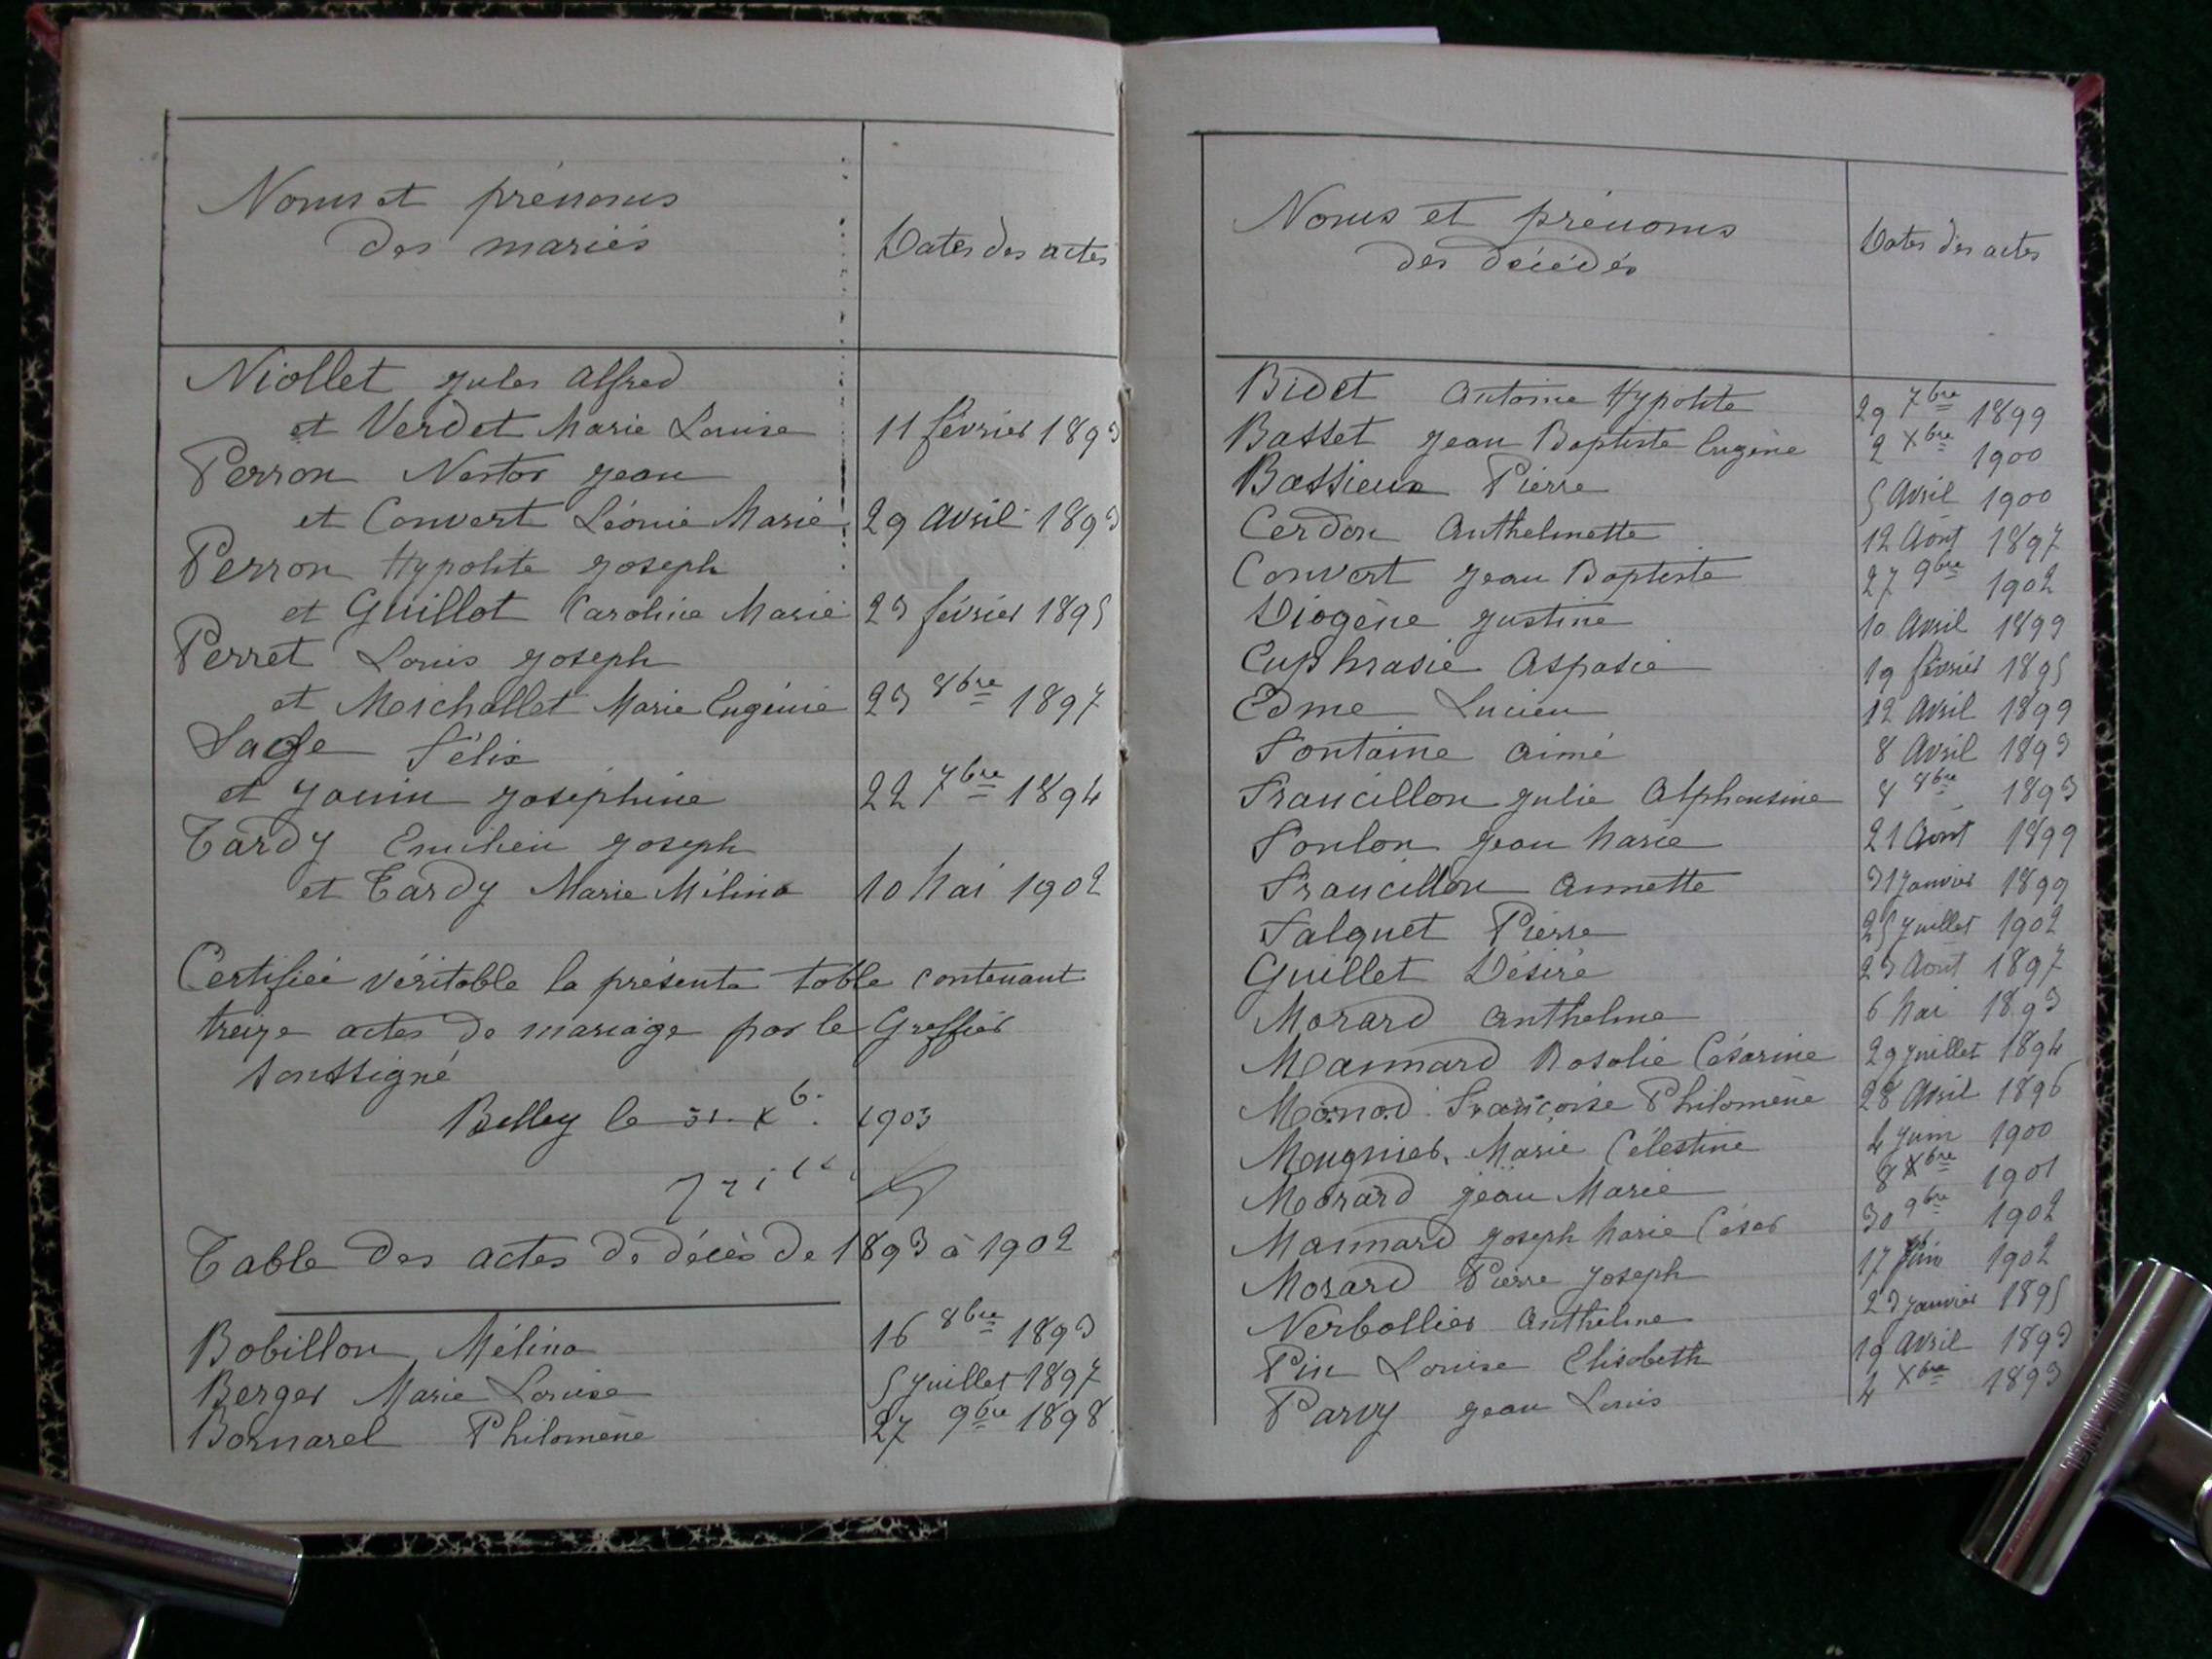 Noms et prénoms
des mariés
Dates des actes
Niollet Jules Alfred
et Verdet Marie Louise 11 février 1893
Perron Nestor Jean
et Convert Léonie Marie 29 Avril 1893
Perron Hypolite Joseph
et Guillot Caroline Marie 23 février 1895
Perret Louis Joseph
et Meichallet Marie Eugénie 23 8bre 1897
Sage Félix
et Jouin Joséphine 22 7bre 1894
Tardy Emilien Joseph
et Tardy Marie Mélina 10 Mai 1902
Certifiée véritable la présente table contenant
treize actes de mariage par le Greffier
soussigné
Belley le 31 Xb. 1903
Table des actes de décès de 1893 à 1902
Bobillon Mélina 16 8bre 1893
Berger Marie Louise 5 Juillet 1897
Bornarel Philomène 27 9bre 1898
Noms et prénoms
des décédés
Dates des actes
Bidet Antoine Hypolite 29 7bre 1899
Basset Jean Baptiste Eugène 2 Xbre 1900
Bassieux Pierre 5 Avril 1900
Cerdon Anthelmette 12 Août 1897
Convert Jean Baptiste 27 9bre 1902
Diogène Justine 10 Avril 1899
Euphrasie Aspasie 19 février 1895
Edme Lucien 12 Avril 1899
Fontaine Aimé 8 Avril 1893
Francillon Julie Alphonsine 8 8bre 1893
Foulon Jean Marie 21 Août 1899
Francillon Annette 31 Janvier 1899
Falquet Pierre 25 Juillet 1902
Guillet Désiré 23 Août 1897
Morard Anthelme 6 Mai 1893
Mannard Rosalie Césarine 29 Juillet 1894
Monod Françoise Philomène 28 Avril 1896
Meugnier Marie Célestine 4 Juin 1900
Morard Jean Marie 8 Xbre 1901
Mannard Joseph Marie César 30 9bre 1902
Morard Pierre Joseph 17 Juin 1902
Nerbollier Anthelme 23 Janvier 1895
Pin Louise Elisabeth 19 Avril 1893
Parvy Jean Louis 4 Xbre 1893